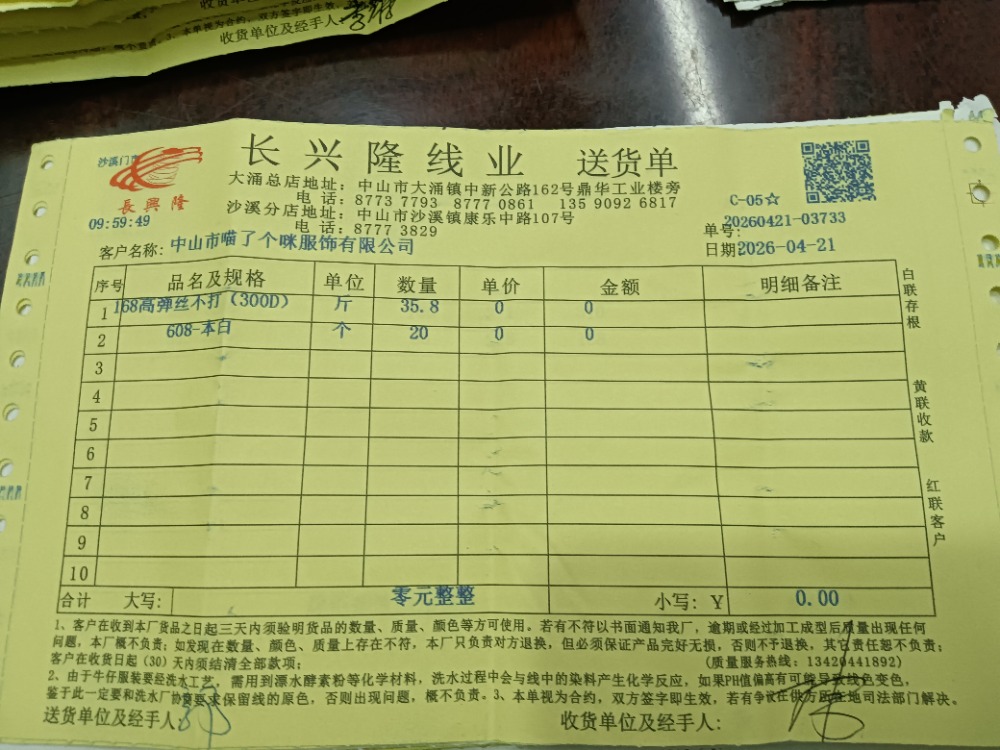 收货单位及经手人
沙溪门市
長興隆
09:59:49
长兴隆线业 送货单
大涌总店地址：中山市大涌镇中新公路162号鼎华工业楼旁
电话：8773 7793 8777 0861 135 9092 6817
沙溪分店地址：中山市沙溪镇康乐中路107号
电话：8777 3829
C-05☆
单号：20260421-03733
客户名称：中山市喵了个咪服饰有限公司
日期：2026-04-21
序号 品名及规格 单位 数量 单价 金额 明细备注
1 168高弹丝不打（300D） 斤 35.8 0 0
2 608-本白 个 20 0 0
3
4
5
6
7
8
9
10
合计 大写： 零元整整 小写：Y 0.00
白联存根
黄联收款
红联客户
1、客户在收到本厂货品之日起三天内须验明货品的数量、质量、颜色等方可使用。若有不符以书面通知我厂，逾期或经过加工成型后质量出现任何
问题，本厂概不负责；如发现在数量、颜色、质量上存在不符，本厂只负责对方退换，但必须保证产品完好无损，否则不予退换，其它责任恕不负责；
客户在收货日起（30）天内须结清全部款项； （质量服务热线：13420441892）
2、由于牛仔服装要经洗水工艺，需用到漂水酵素粉等化学材料，洗水过程中会与线中的染料产生化学反应，如果PH值偏高有可能导致线色变色，
鉴于此一定要和洗水厂协商要求保留线的原色，否则出现问题，概不负责。3、本单视为合约，双方签字即生效，若有争议在供方所在地司法部门解决。
送货单位及经手人：
收货单位及经手人：